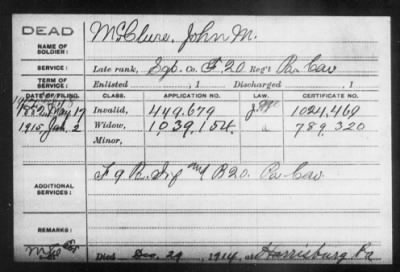 DEAD
NAME OF SOLDIER:
McClure, John M.
SERVICE:
Late rank, Sgt. Co. F, 20 Reg't Pa Cav
TERM OF SERVICE:
Enlisted , 1 Discharged , 1
DATE OF FILING. CLASS. APPLICATION NO. LAW. CERTIFICATE NO.
1882 May 17 Invalid, 449.679 1021,469
1915 Jan. 2 Widow, 1039.154 789.320
Minor,
ADDITIONAL SERVICES:
F 9 R. Inf and B 20. Pa Cav
REMARKS:
Died Dec. 29, 1914, at Harrisburg Pa